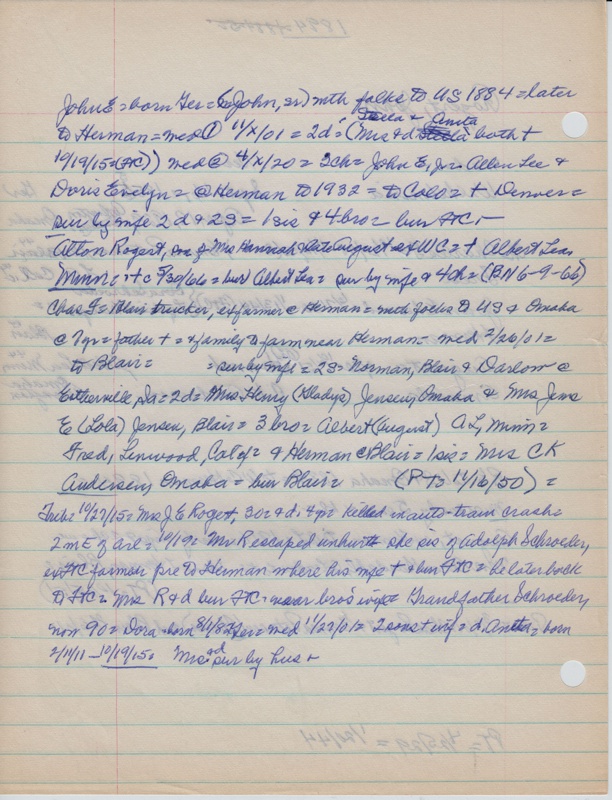 John E = born Ger = (to John, sr) with folks to US 1884 = later
Stella & Anita
to Herman = med ① 11/x/01 = 2d = (Mrs & d both +
10/19/15 = (FtC)) med @ 4/x/20 = 3ch = John E, Jr = Allen Lee &
Doris Evelyn = @ Herman to 1932 = to Colo = + Denver =
sur by wife 2d & 2S = 1 sis & 4 bro = bur FtC +
Alton Rogert, son of Mrs Hannah & late August of WC = + Albert Lea
Minn = + c 5/30/66 = bur Albert Lea = sur by wife & 4ch = (BN 6-9-66)
Chas F = Blair trucker, ex farmer @ Herman = with folks to US & Omaha
@ 7yr = father + = & family to farm near Herman = med 2/26/01 =
to Blair = = sur by wife = 2S = Norman, Blair & Darlow @
Estherville, Ia = 2d = Mrs Henry (Gladys) Jensen, Omaha & Mrs Jens
E (Lola) Jensen, Blair = 3 bro = Albert (August) A L, Minn =
Fred, Linwood, Calif = & Herman @ Blair = 1 sis = Mrs C K
Andersen, Omaha = bur Blair = (PT = 11/16/50) =
Trib = 10/27/15 = Mrs J E Rogert, 30 = & d 4 yr killed in auto-train crash =
2 m E of Arl = 10/19 = Mr R escaped unhurt = she sis of Adolph Schroeder,
FtC farmer pre to Herman where his wife + & bur FtC = he later back
to FtC = Mrs R & d bur FtC near bro's wife = Grandfather Schroeder,
now 90 = Dora born Ger = med 11/27/01 = 2 sons & wif = d. Anita = born
2/11/11 - 10/19/15 = Mrs & d sur by hus +